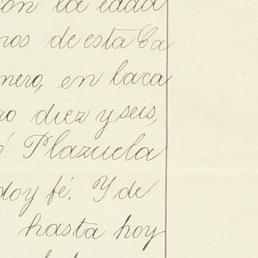 con la edad
nos de esta Ca
nero, en la ca
ro diez y seis,
ó Plazuela
doy fé. Y de
hasta hoy